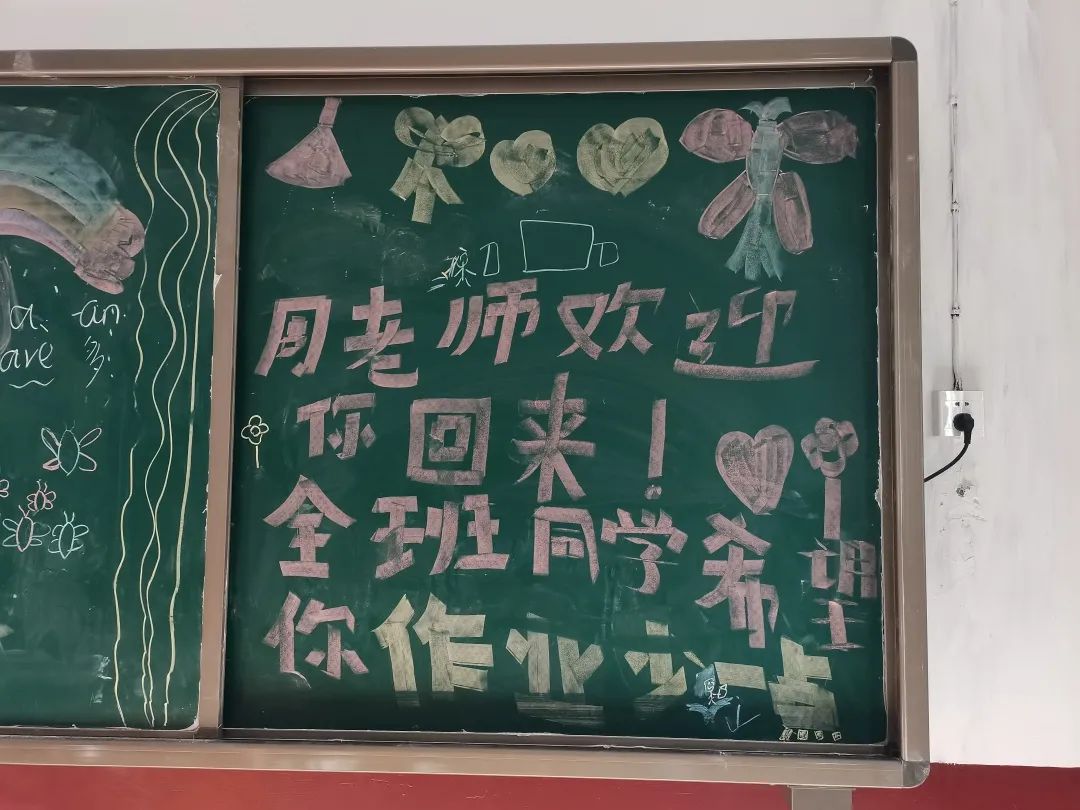 周老师欢迎
你回来！
全班同学希望
你作业少一点
ai an
are 多